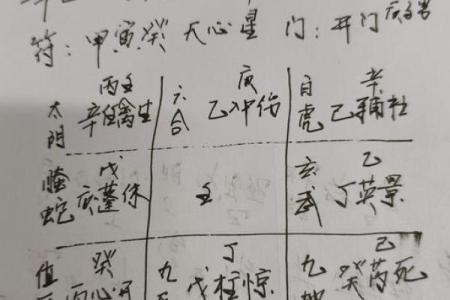 符：甲寅癸 天心星 门：开门
太阴 丙壬 六合 庚 白虎 辛
辛 生 乙冲伤 己辅杜
螣蛇 戊 玄武 乙
庚蓬休 壬 丁英景
值 癸 九 丁 九 己
丙心开 戊柱惊 癸芮死